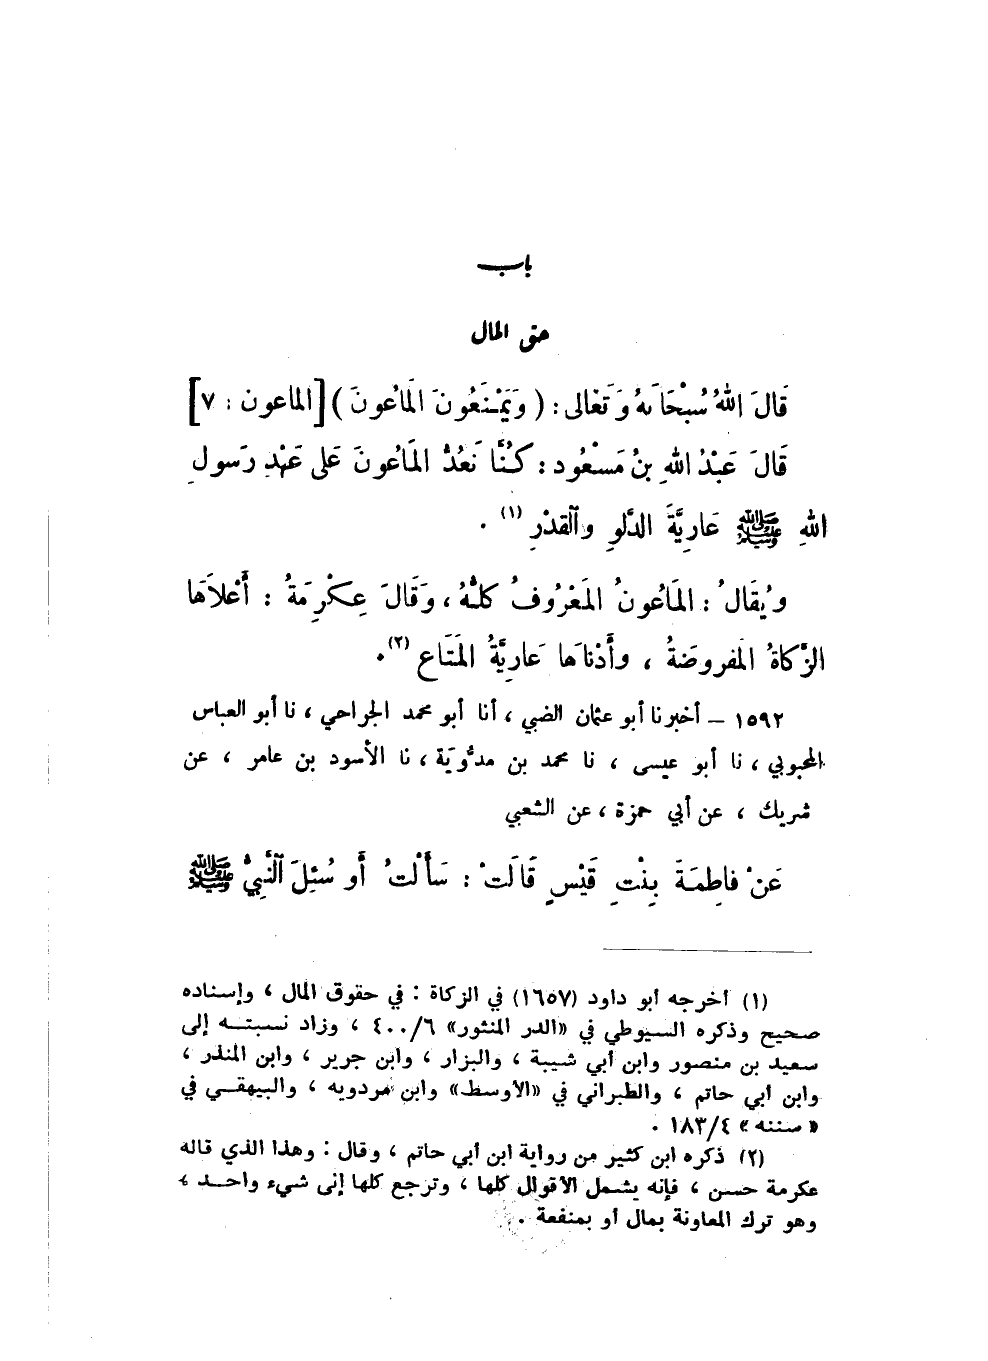 باب
حق المال
قَالَ اللهُ سُبْحَانَهُ وَتَعَالى : ( وَيَمْنَعُونَ المَاعُونَ ) [ الماعون : ٧ ]
قَالَ عَبْدُ اللهِ بنُ مَسْعُود : كُنَّا نَعُدُّ المَاعُونَ عَلى عَهْدِ رَسولِ
اللهِ ﷺ عَارِيَّةَ الدَّلوِ والقدْرِ (١) .
ويُقَالُ : المَاعُونُ المَعْرُوفُ كلُّهُ ، وَقَالَ عِكْرِمَةُ : أَعْلاَهَا
الزَّكاةُ المفروضَةُ ، وأَدْنَاهَا عَارِيَّةُ المَتَاع (٢) .
١٥٩٢ – أخبرنا أبو عثمان الضبي ، أنا أبو محمد الجراحي ، نا أبو العباس
المحبوبي ، نا أبو عيسى ، نا محمد بن مدُّويَة ، نا الأسود بن عامر ، عن
شريك ، عن أبي حمزة ، عن الشعبي
عَنْ فاطِمَةَ بِنْتِ قَيْسٍ قَالَتْ : سَأَلْتُ أَو سُئِلَ النَّبِيُّ ﷺ
(١) أخرجه أبو داود (١٦٥٧) في الزكاة : في حقوق المال ، وإسناده
صحيح وذكره السيوطي في «الدر المنثور» ٤٠٠/٦ ، وزاد نسبته إلى
سعيد بن منصور وابن أبي شيبة ، والبزار ، وابن جرير ، وابن المنذر ،
وابن أبي حاتم ، والطبراني في «الأوسط» وابن مردويه ، والبيهقي في
« سننه » ١٨٣/٤ .
(٢) ذكره ابن كثير من رواية ابن أبي حاتم ، وقال : وهذا الذي قاله
عكرمة حسن ، فإنه يشمل الأقوال كلها ، وترجع كلها إلى شيء واحد ،
وهو ترك المعاونة بمال أو بمنفعة .